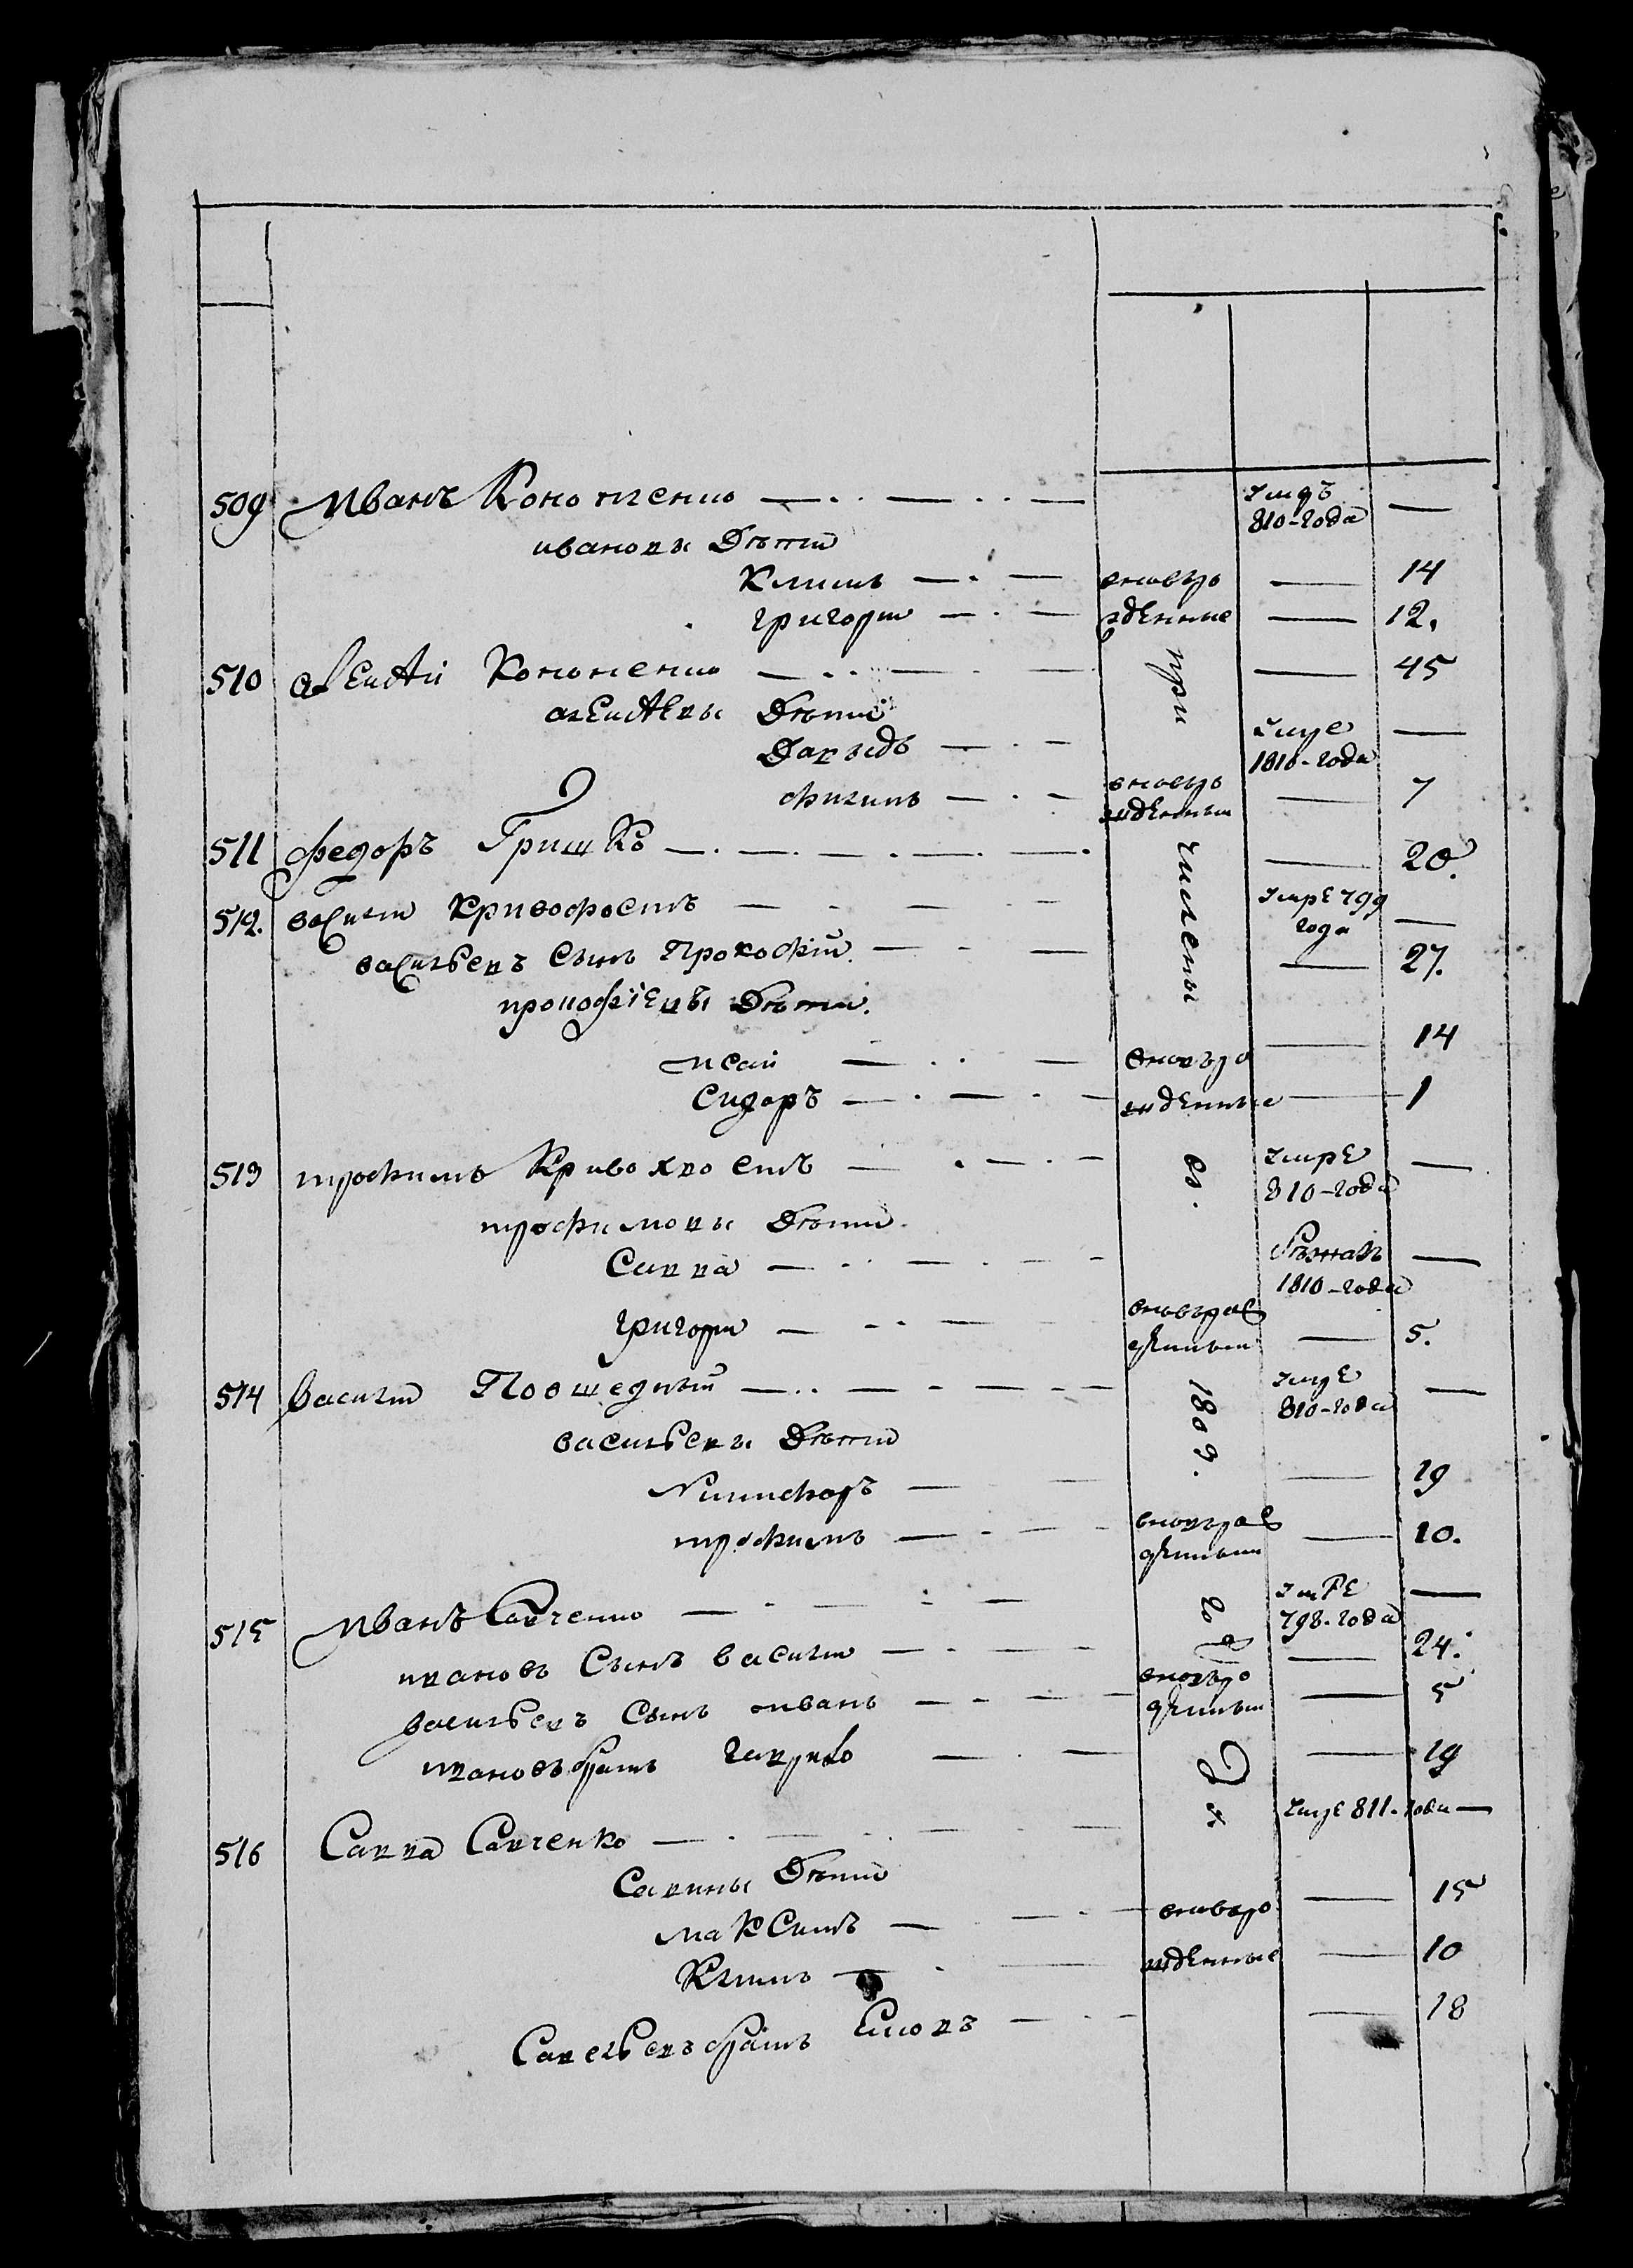 509 Иванъ Кононенко умеръ
810-года
ивановы Дѣти
Климъ вновьро 14
григорій жденные 12.
510 алексѣй Кононенко при 45
алексѣевы Дѣти
Давыдъ умре
1810-года
филипъ вновьро 7
жденный
511 федоръ Гришко числены 20.
512. василій Кривофостъ умре 799
года
васильевъ сынъ Прокофій 27.
прокофіевы Дѣти.
исай вновьро 14
сидоръ жденные 1
513 трофимъ Кривохвостъ въ. умре
810-года
трофимовы Дѣти.
Савва
1810-года
григорій вноврож 5.
денный
514 василій Пошедный 1809. умре
810-года
васильевы Дѣти
Никифоръ 19
трофимъ вноврож 10.
денный
515 Иванъ Савченко году умре
798-года
ивановъ Сынъ василій 24.
васильевъ Сынъ иванъ вновьро 5
жденный
ивановъ братъ гаврило 19
516 Савва Савченко умре 811-года
Савины Дѣти
максимъ вновьро 15
Климъ жденные 10
Савельевъ братъ 18